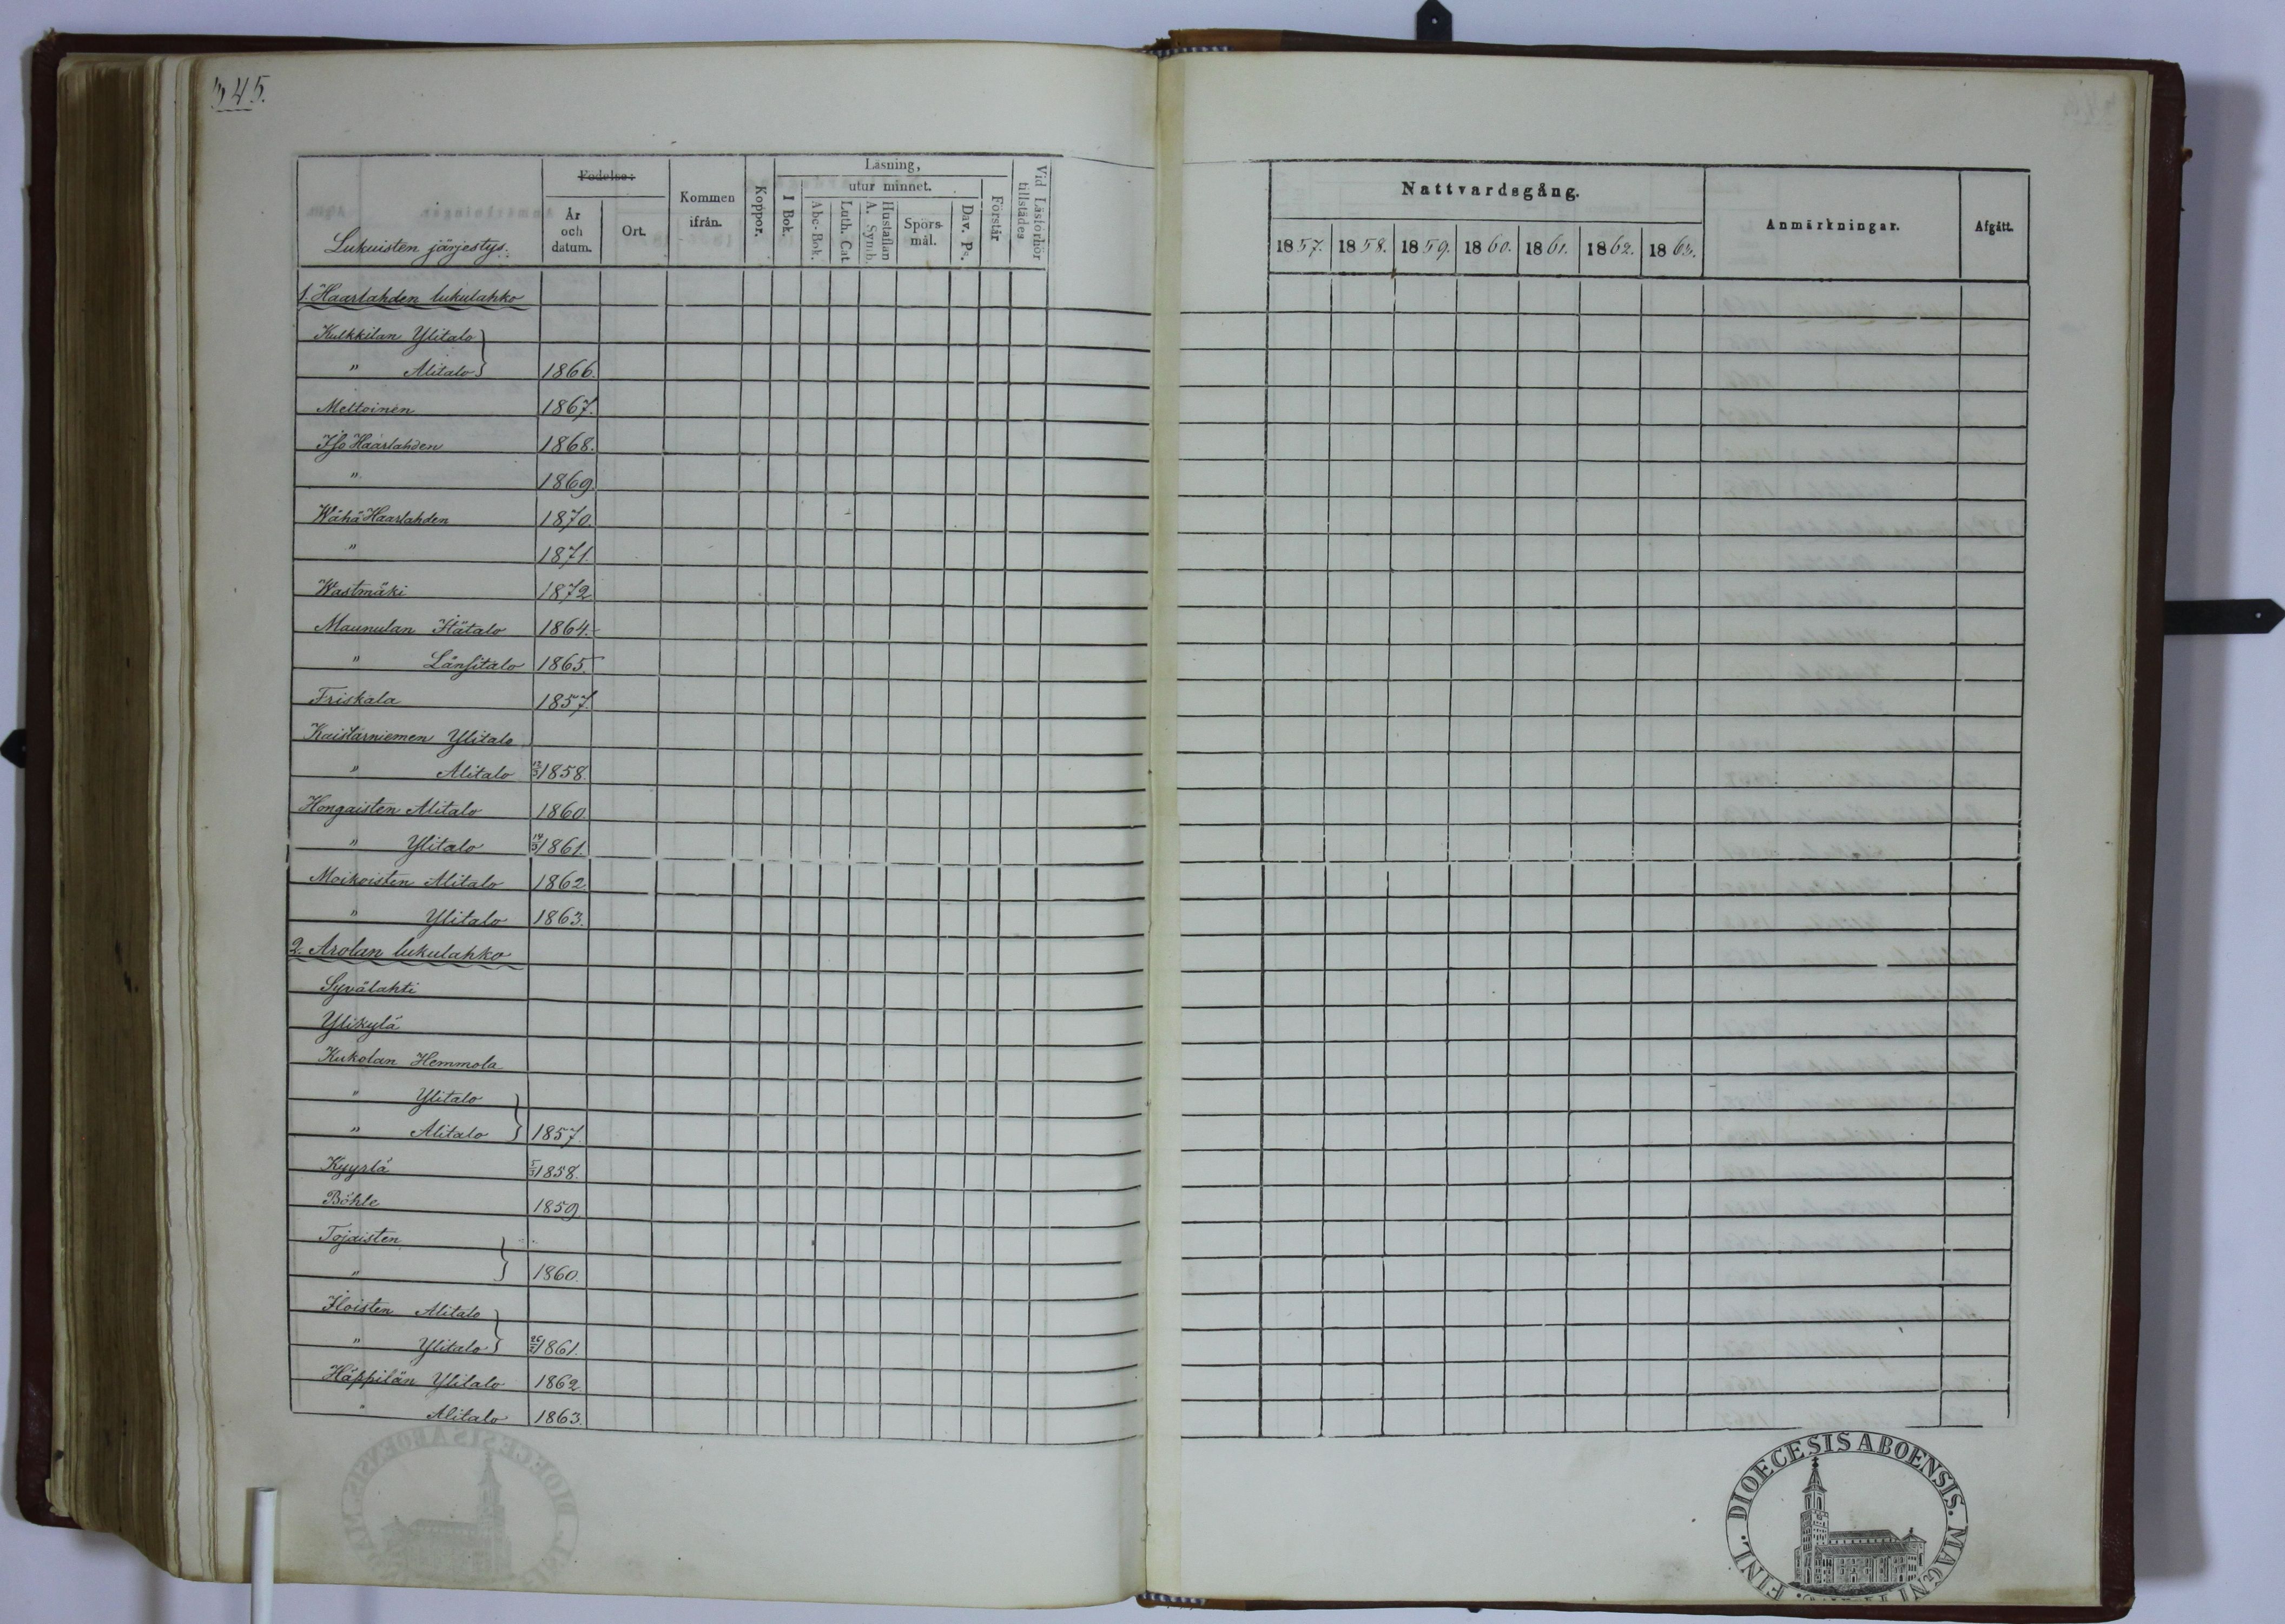 345.
Lukuisten järjestys.
Födelse:
År och datum.
Ort.
Kommen ifrån.
Koppor.
Läsning,
I Bok.
utur minnet.
Abc-Bok.
Luth. Cat.
A. Symb.
Hustaflan
Spörs-mål.
Dav. Ps.
Förstår
Vid Läsförhör tillstädes
Nattvardsgång.
1857. 1858. 1859. 1860. 1861. 1862. 1863.
Anmärkningar.
Afgått.
1. Haarlahden lukulahko
Kulkkilan Ylitalo
" Alitalo 1866.
Meltoinen 1867.
Iso Haarlahden 1868.
" 1869.
Wähä Haarlahden 1870.
" 1871.
Wastmäki 1872
Maunulan Itätalo 1864.
" Länsitalo 1865.
Friskala 1857.
Kaistarniemen Ylitalo
" Alitalo 1858.
Hongaisten Alitalo 1860.
" Ylitalo 1861.
Moikoisten Alitalo 1862
" Ylitalo 1863.
2. Arolan lukulahko
Syvälahti
Ylikylä
Kukolan Hemmola
" Ylitalo
" Alitalo 1857.
Kyyrlä 1858.
Böhle 1859
Tojaisten
" 1860.
Iloisten Alitalo
" Ylitalo 1861.
Häppilän Ylitalo 1862.
" Alitalo 1863.
FINL. DIOECESIS ABOENSIS. MAGNI